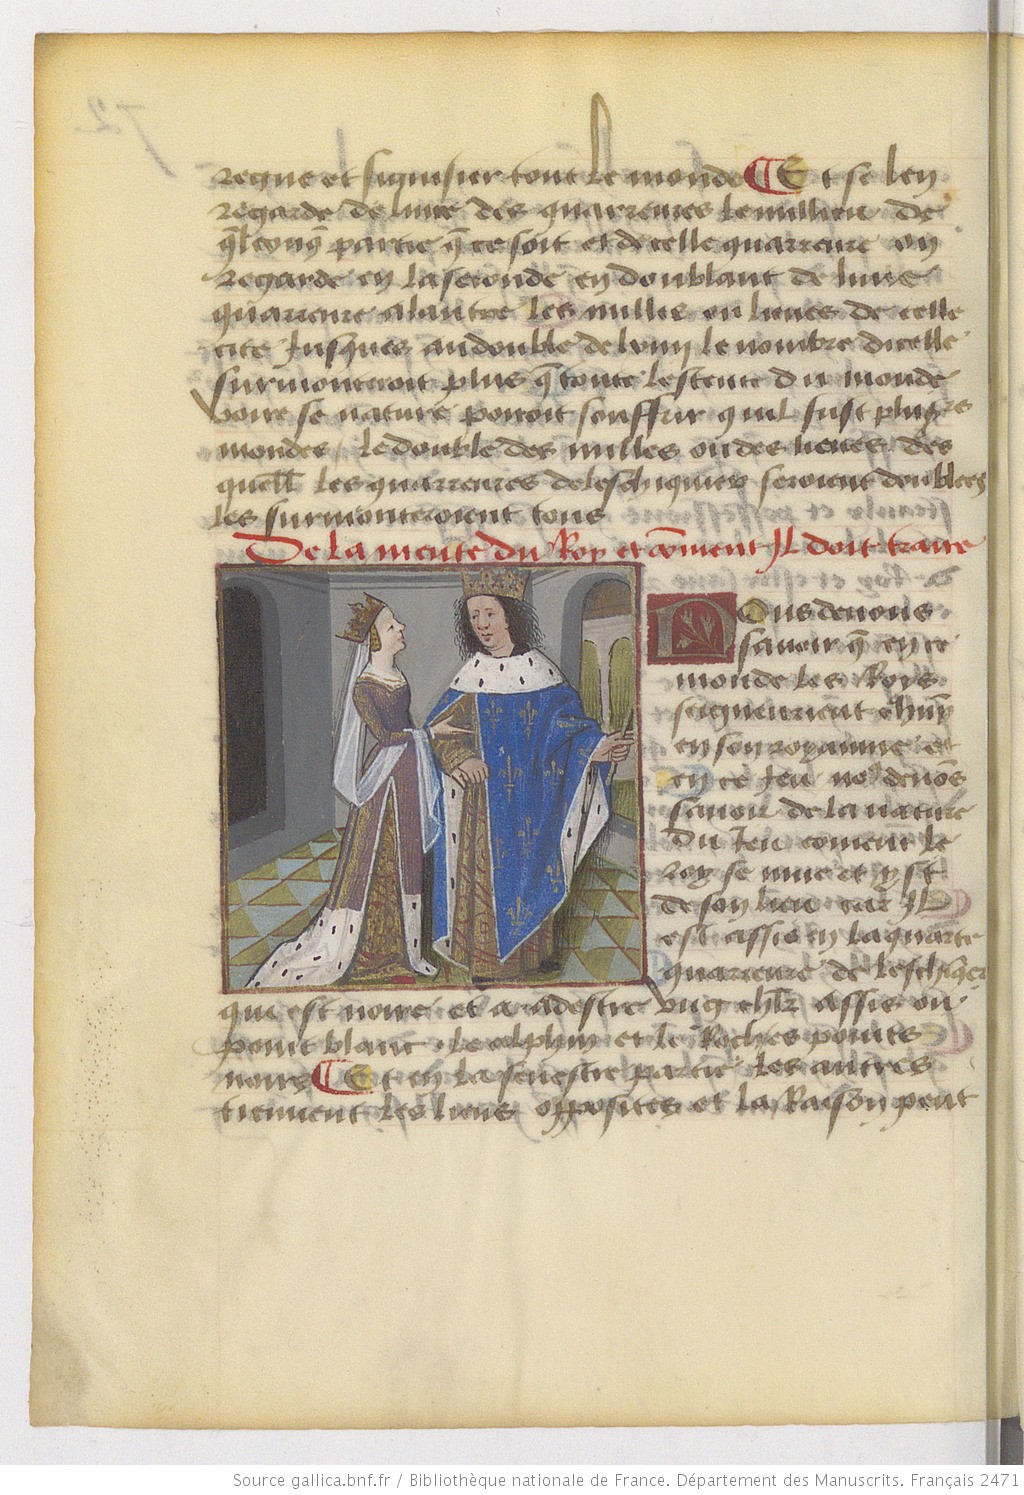 72
regne et signifier tout le monde Et se len
regarde de lune des quarreures le millieu de
q̃lconq̃ partie q̃ ce soit et de celle quarreure on
regarde en la seconde en doublant de lune
quarreure a lautre les milles ou lieues de celle
cite Jusques au double de lxiiij le nombre dicelle
surmonteroit plus q̃ toute lestente du monde
voire se nature pouoit souffrir quil fust plusrs
mondes le double des milles ou des lieues des
quell̃ les quarreures de leschiquier seroient doublees
les surmonteroient tous
De la meute du Roy et cõment Jl doit traire
Nous deuons
sauoir q̃ en ce
monde les Roys
seigneurient chũn
en son royaume et
en ce Jeu no9 deuõs
sauoir de la nature
du Jeu coment le
roy se mue et yst
de son lieu car Jl
est assis en la quarte
quarreure de leschiq̃er
que est noire et a a destre vng chlr̃ assis ou
point blanc le alphin et le Roch es poins
noirs Et en la senestre partie les autres
tiennent les lieus opposites et la Raison peut
Source gallica.bnf.fr / Bibliothèque nationale de France. Département des Manuscrits. Français 2471